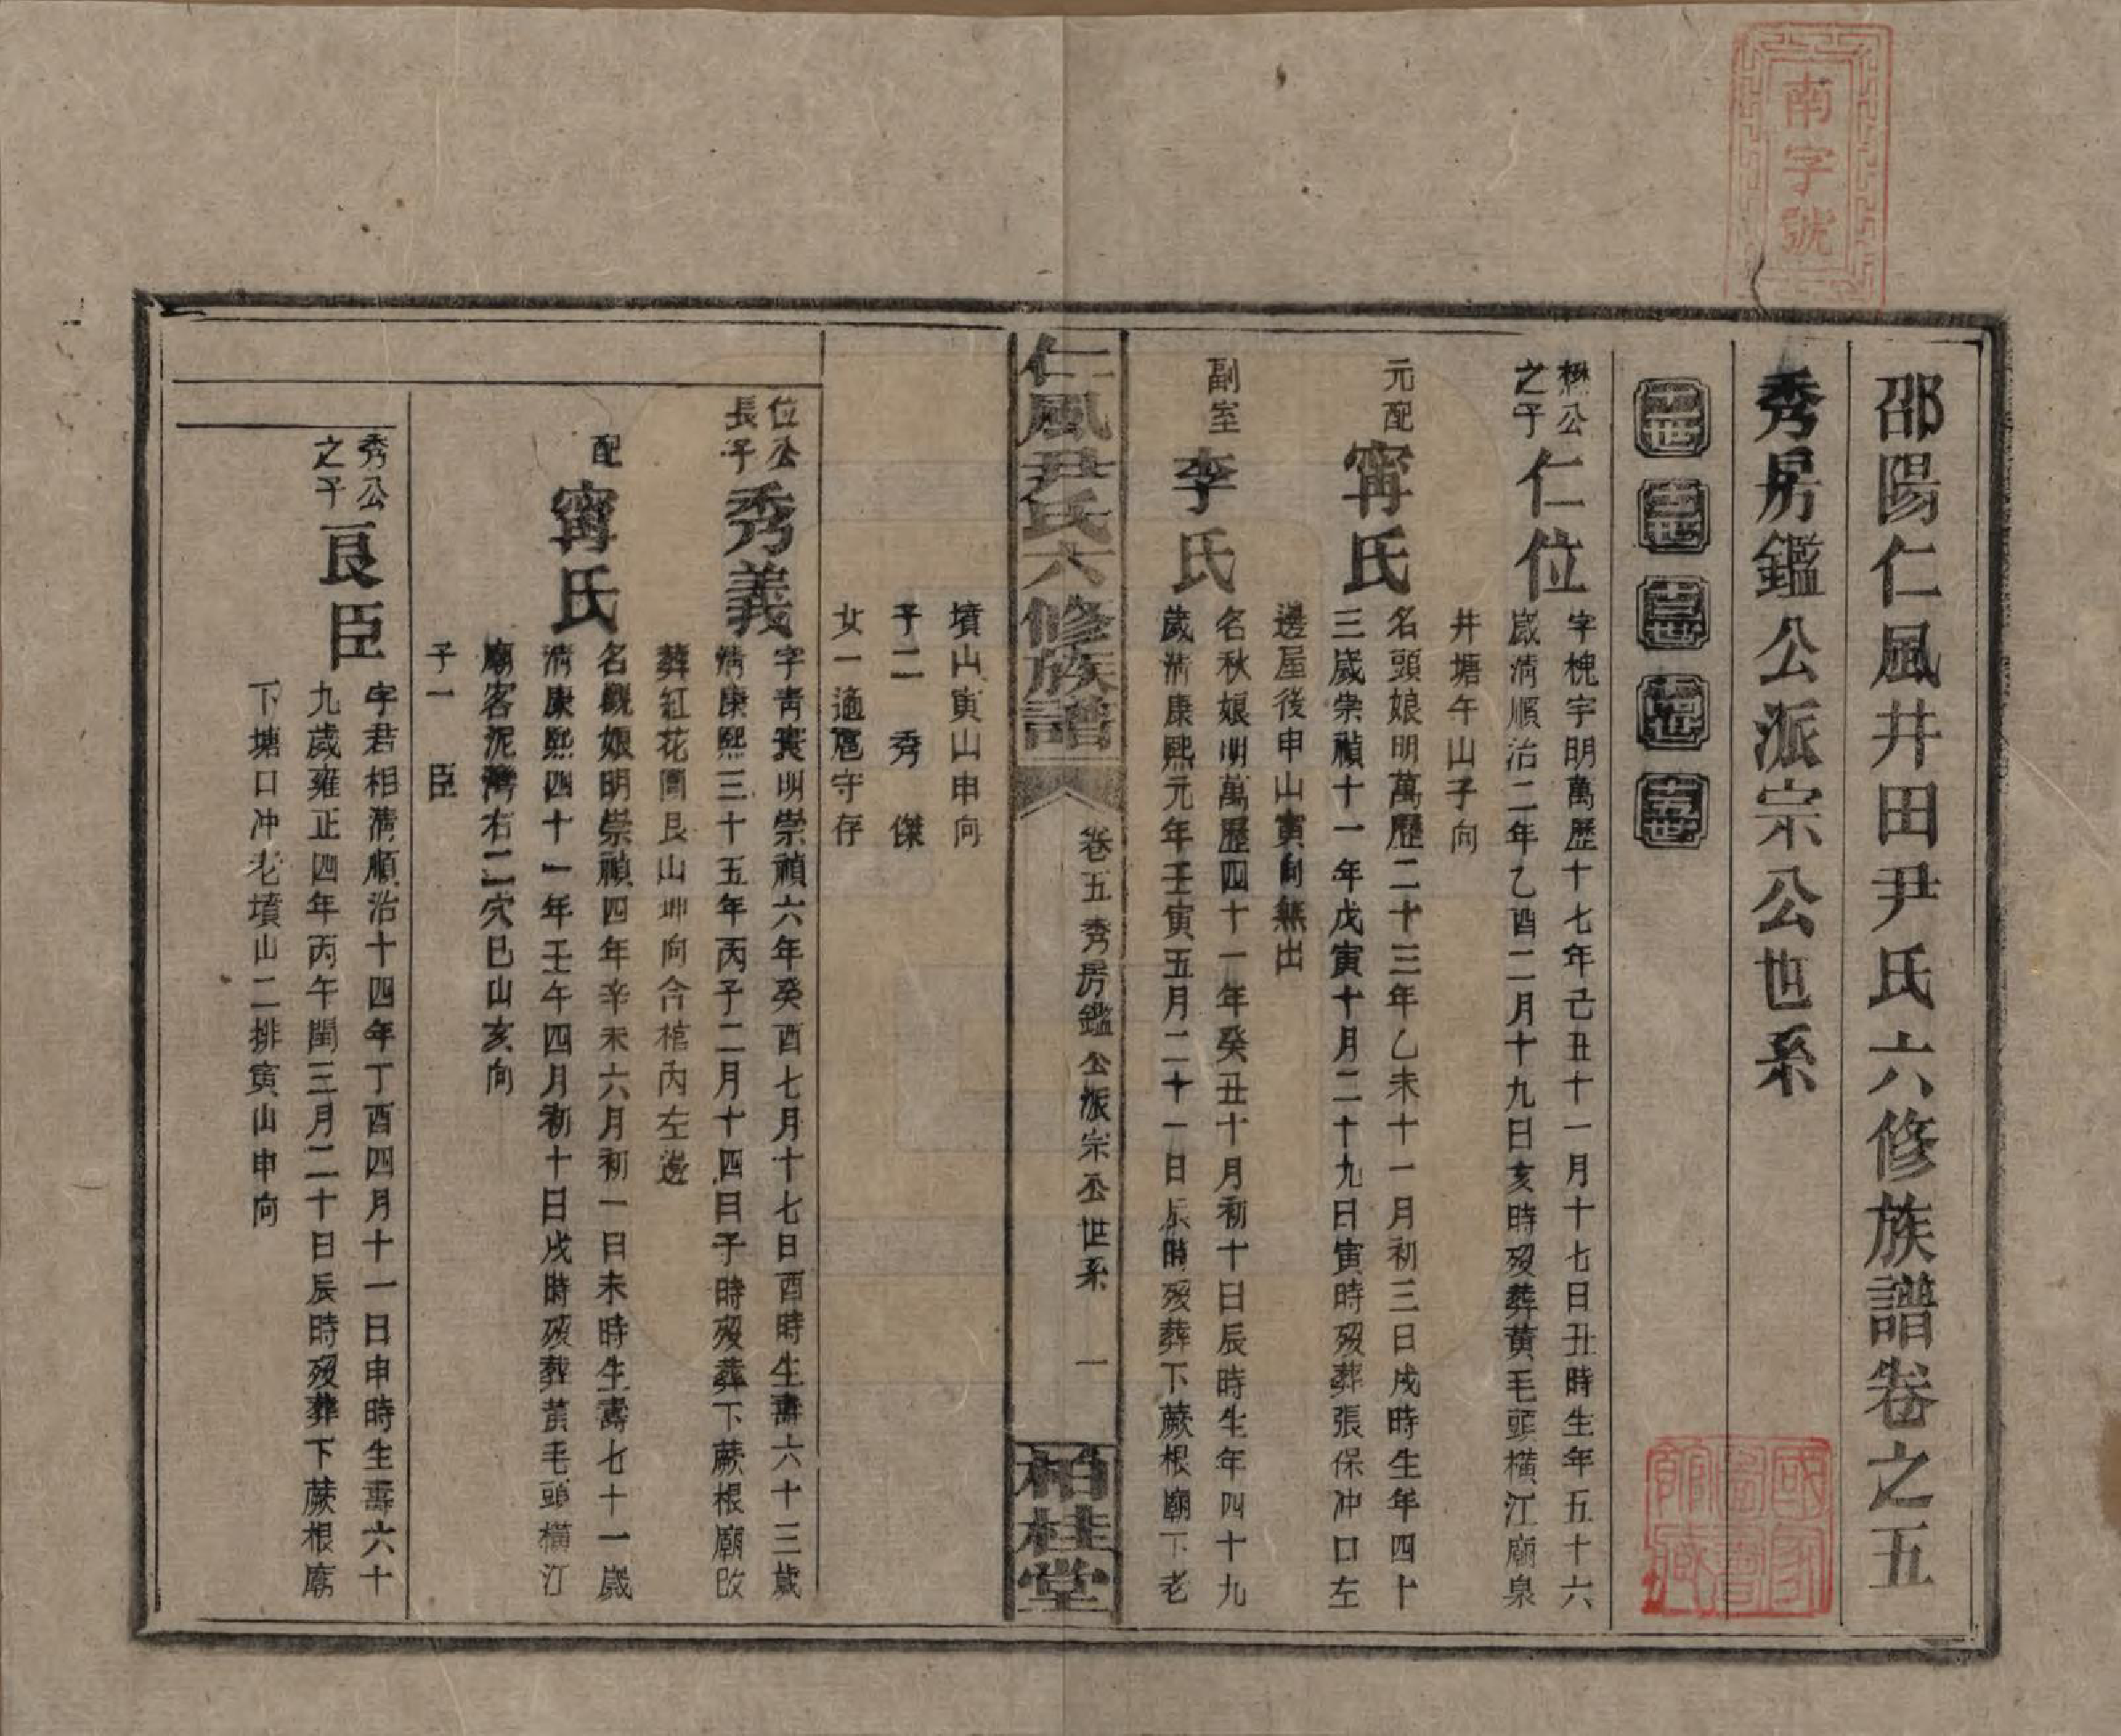 南字號
邵陽仁風井田尹氏六修族譜卷之五
秀房鑑公派宗公世系
十一世
十二世
十三世
十四世
十五世
楙公之子
仁位
字槐宇明萬歷十七年己丑十一月十七日丑時生年五十六
歲淸順治二年乙酉二月十九日亥時歿葬黄毛頭橫江廟泉
井塘午山子向
元配
甯氏
名頭娘明萬歷二十三年乙未十一月初三日戌時生年四十
三歲崇禎十一年戊寅十月二十九日寅時歿葬張保冲口左
邊屋後申山寅向無出
副室
李氏
名秋娘明萬歷四十一年癸丑十月初十日辰時生年四十九
歲淸康熙元年壬寅五月二十一日辰時歿葬下蕨根廟下老
仁風尹氏六修族譜
卷五 秀房鑑公派宗公世系 一
柏桂堂
墳山寅山申向
子二 秀 傑
女一適扈守存
位公長子
秀義
字靑寰明崇禎六年癸酉七月十七日酉時生壽六十三歲
淸康熙三十五年丙子二月十四日子時歿葬下蕨根廟改
葬紅花園艮山坤向合棺內左邊
配
甯氏
名觀娘明崇禎四年辛未六月初一日未時生壽七十一歲
淸康熙四十一年壬午四月初十日戌時歿葬黃毛頭橫江
廟客泥灣右二穴巳山亥向
子一 臣
秀公之子
良臣
字君相淸順治十四年丁酉四月十一日申時生壽六十
九歲雍正四年丙午閏三月二十日辰時歿葬下蕨根廟
下塘口冲老墳山二排寅山申向
國家圖書館藏